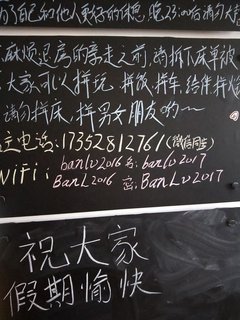 为了自己和他人更好的休息,晚23:00后请勿大
麻烦退房的亲走之前,请拆下床单被
大家可以拼玩 拼饭、拼车、结伴拼火
请勿拼床,拼男女朋友的~
主电话:17352812761(微信同号)
WiFi: banLv2016 密:banLv2017
BanL2016 密:BanLv2017
祝大家
假期愉快